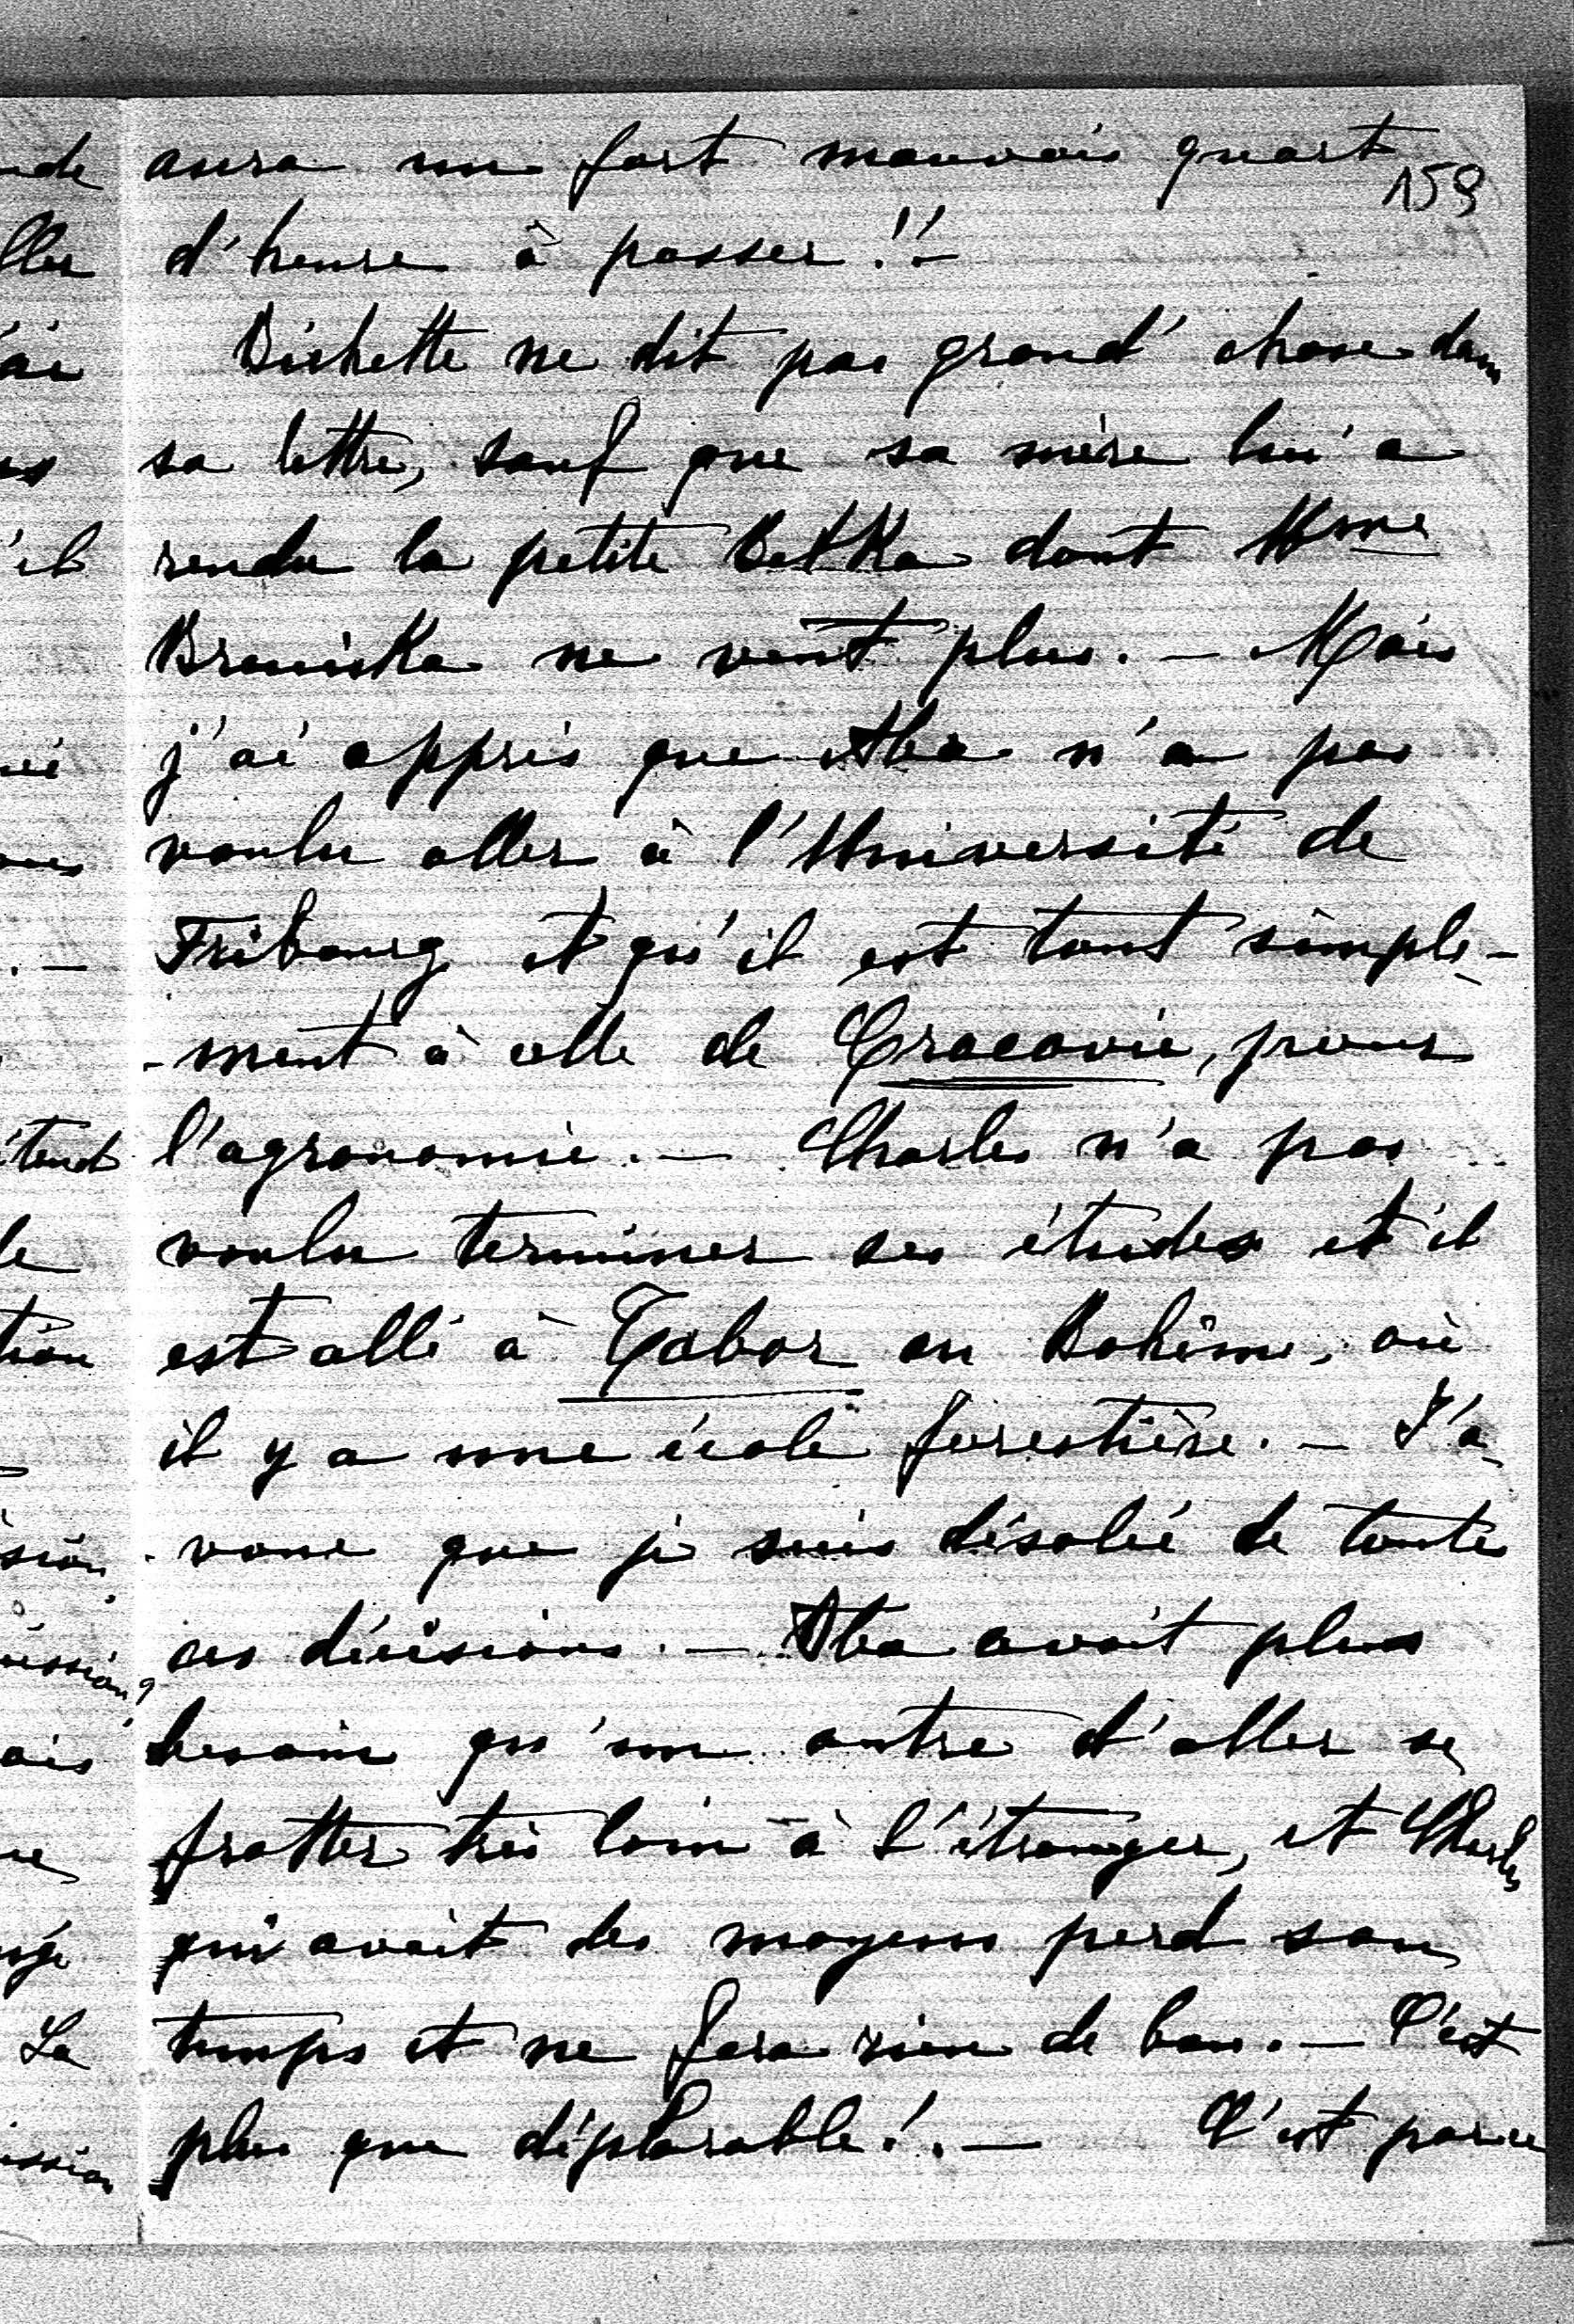 aura un fort mauvais quart
159
d'heure à passer !! –
Bichette ne dit pas grand' chose dans
sa lettre, sauf que sa mère lui a
rendu la petite Betka dont Mme
Broniska ne veut plus. – Mais
j'ai appris que Aba n'a pas
voulu aller à l'Université de
Fribourg et qu'il est tout simple-
-ment à celle de Cracovie, pour
l'agronomie. – Charles n'a pas
voulu terminer ses études et il
est allé à Tabor en Bohême, où
il y a une école forestière. – J'a-
-voue que je suis désolée de toutes
ces décisions. – Aba avait plus
besoin qu'un autre d'aller se
frotter très loin à l'étranger, et Charles
qui avait des moyens perd son
temps et ne fera rien de bon. – C'est
plus que déplorable ! . – C'est parce